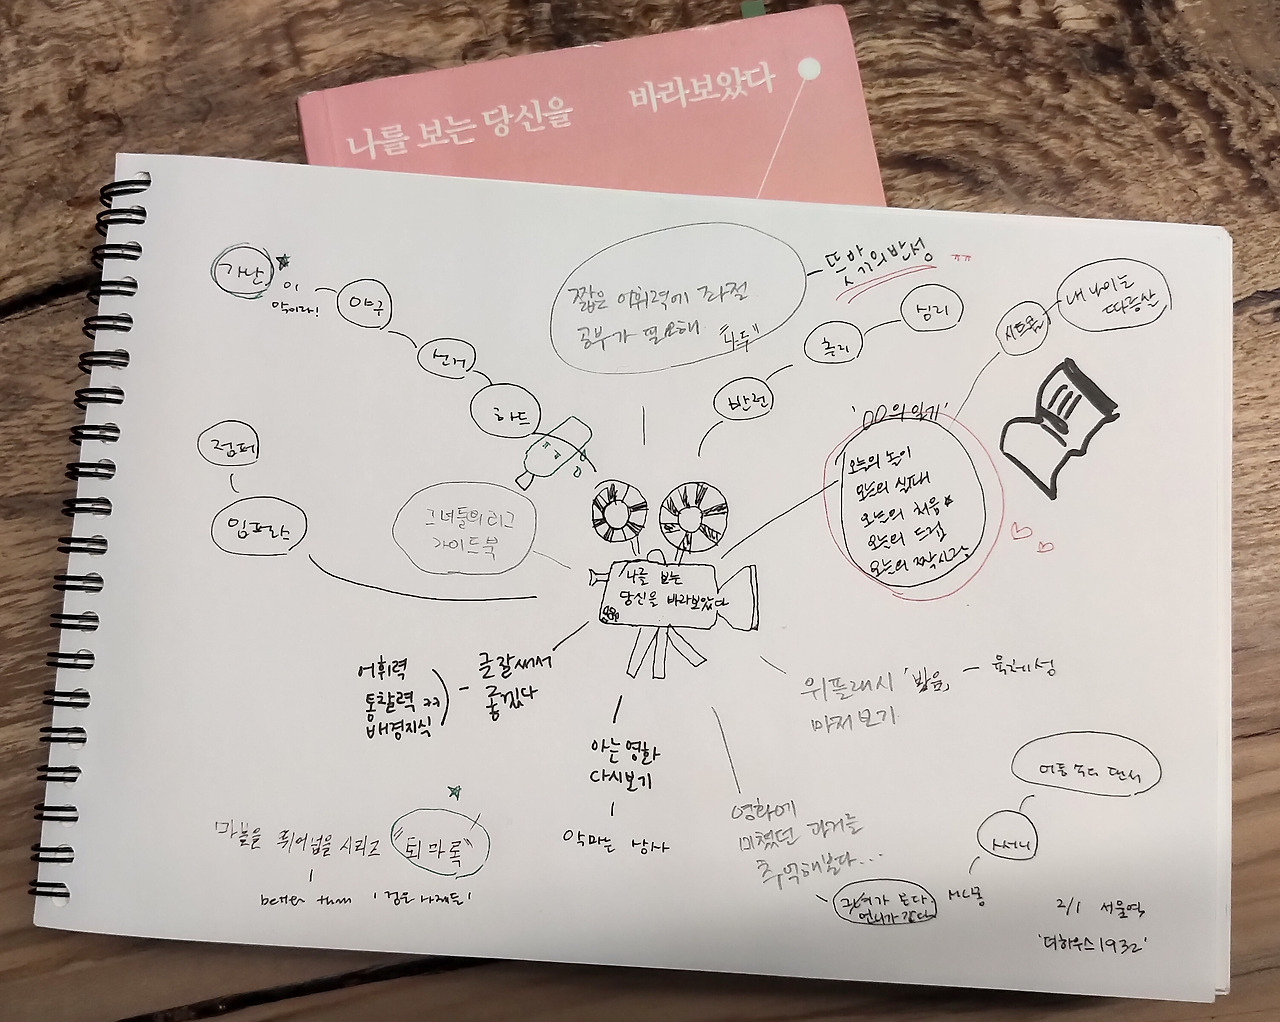 나를 보는 당신을 바라보았다
가난
이
악이라!
야구
선거
하드
짧은 어휘력에 좌절
공부가 필요해
뜻밖의 반성 ㅠㅠ
반전
추리
심리
시트콤
내 나이는
따증살
'OO의 일기'
오늘의 놀이
오늘의 실패
오늘의 처음
오늘의 드립
오늘의
점퍼
임프라스
그녀들의 리그
가이드북
나를 보는
당신을 바라보았다
어휘력
통찰력 ㄱㄱ
배경지식
글 잘 써서
좋겠다
아는 영화
다시보기
악마는
위플래시 '밥을'
마저 보기
영화에
미쳤던 과거를
추억해본다...
언니가 간다
MC몽
써니
어둠 속의 댄서
마블을 뛰어넘을 시리즈 "퇴마록"
better than '검은 사제들'
2/1 서울역
'더하우스1932'